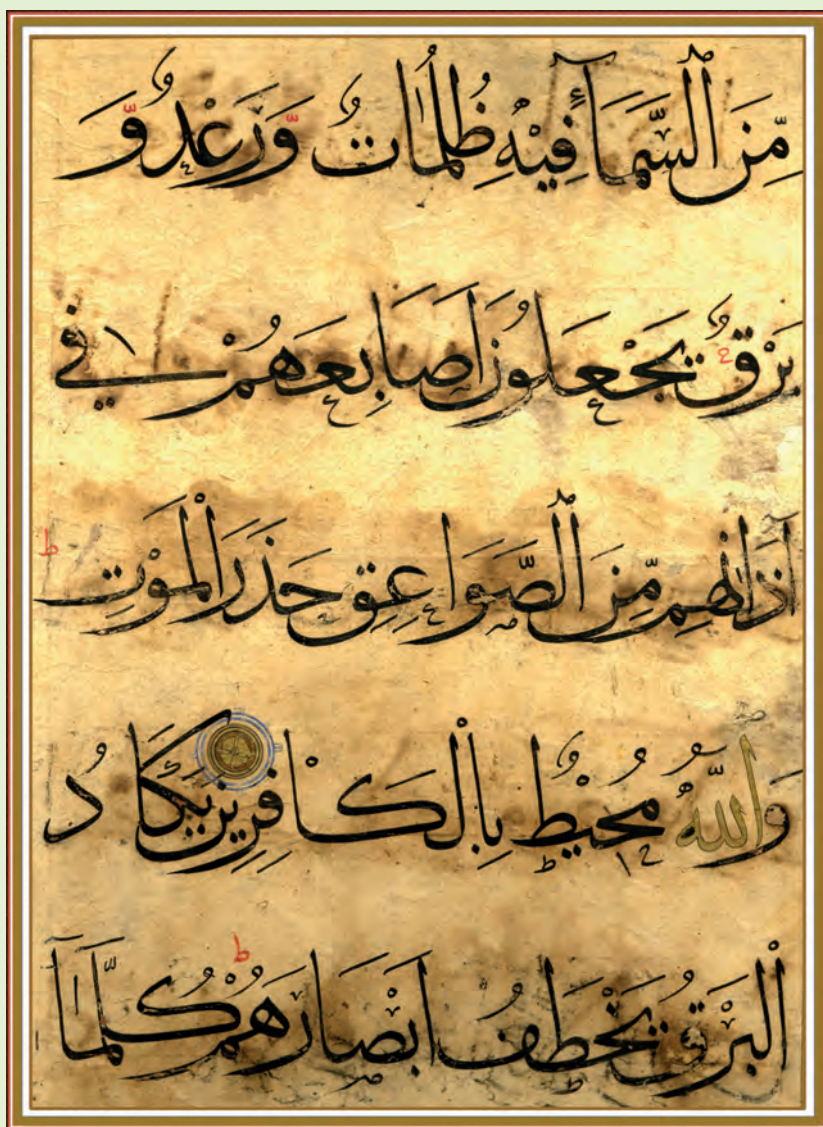 مِّنَ ٱلسَّمَآءِ فِيْهِ ظُلُمٰاتٌ وَّرَعْدٌ وَّ
بَرْقٌ يَجْعَلُونَ اَصَابِعَهُمْ فِي
آذَانِهِم مِّنَ ٱلصَّوَاعِقِ حَذَرَ ٱلْمَوْتِ ط
وَٱللّٰهُ مُحِيْطٌ بِٱلْكَافِرِينَ يَكَادُ
ٱلْبَرْقُ يَخْطَفُ اَبْصَارَهُمْ ط كُلَّمَآ